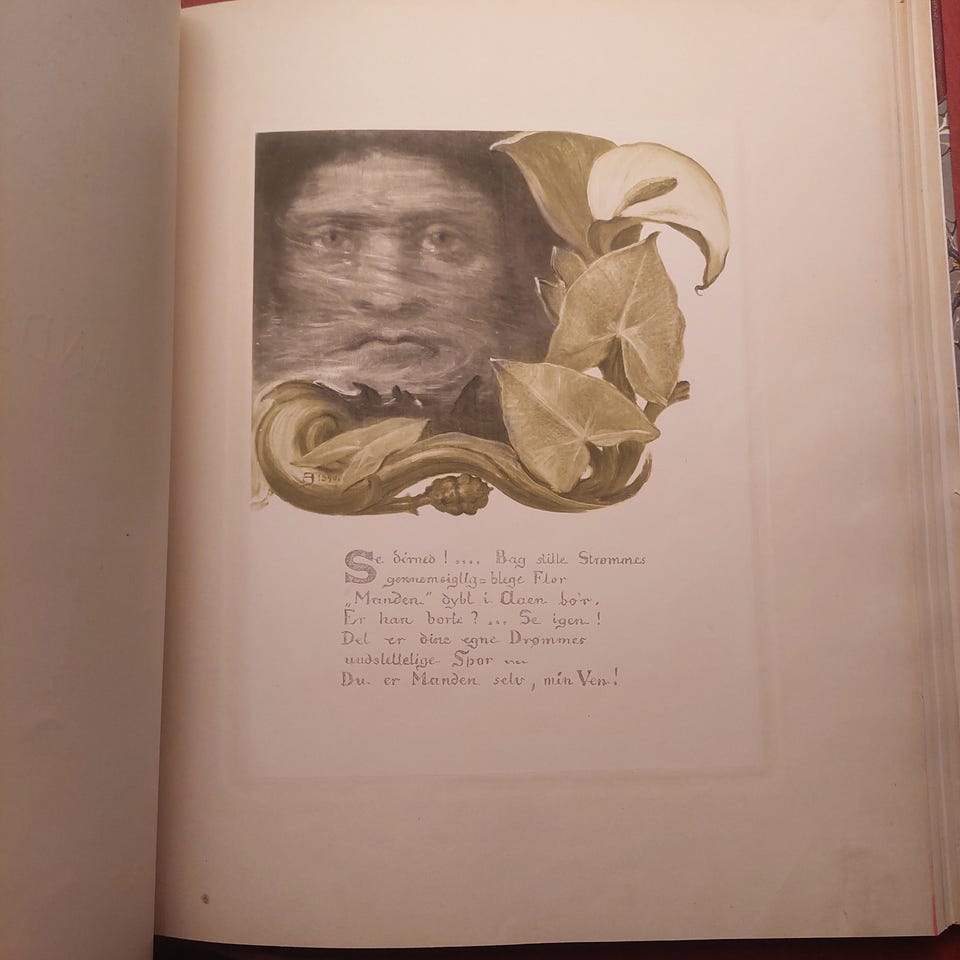 Se dérned ! .... Bag stille Strømmes
gennemsigtig=blege Flor
„Manden" dybt i Aaen bo'r.
Er han borte ? ... Se igen !
Det er dine egne Drømmes
uudslettelige Spor
Du er Manden selv, min Ven !